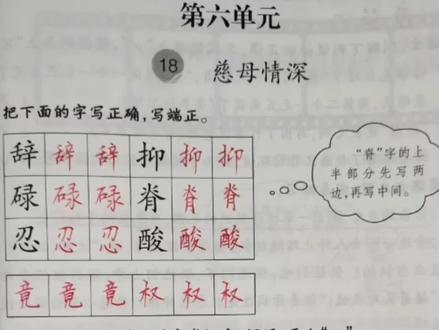 第六单元
18 慈母情深
把下面的字写正确,写端正。
辞 辞 辞 抑 抑 抑
碌 碌 碌 脊 脊 脊
忍 忍 忍 酸 酸 酸
竟 竟 竟 权 权 权
“脊”字的上
半部分先写两
边,再写中间。